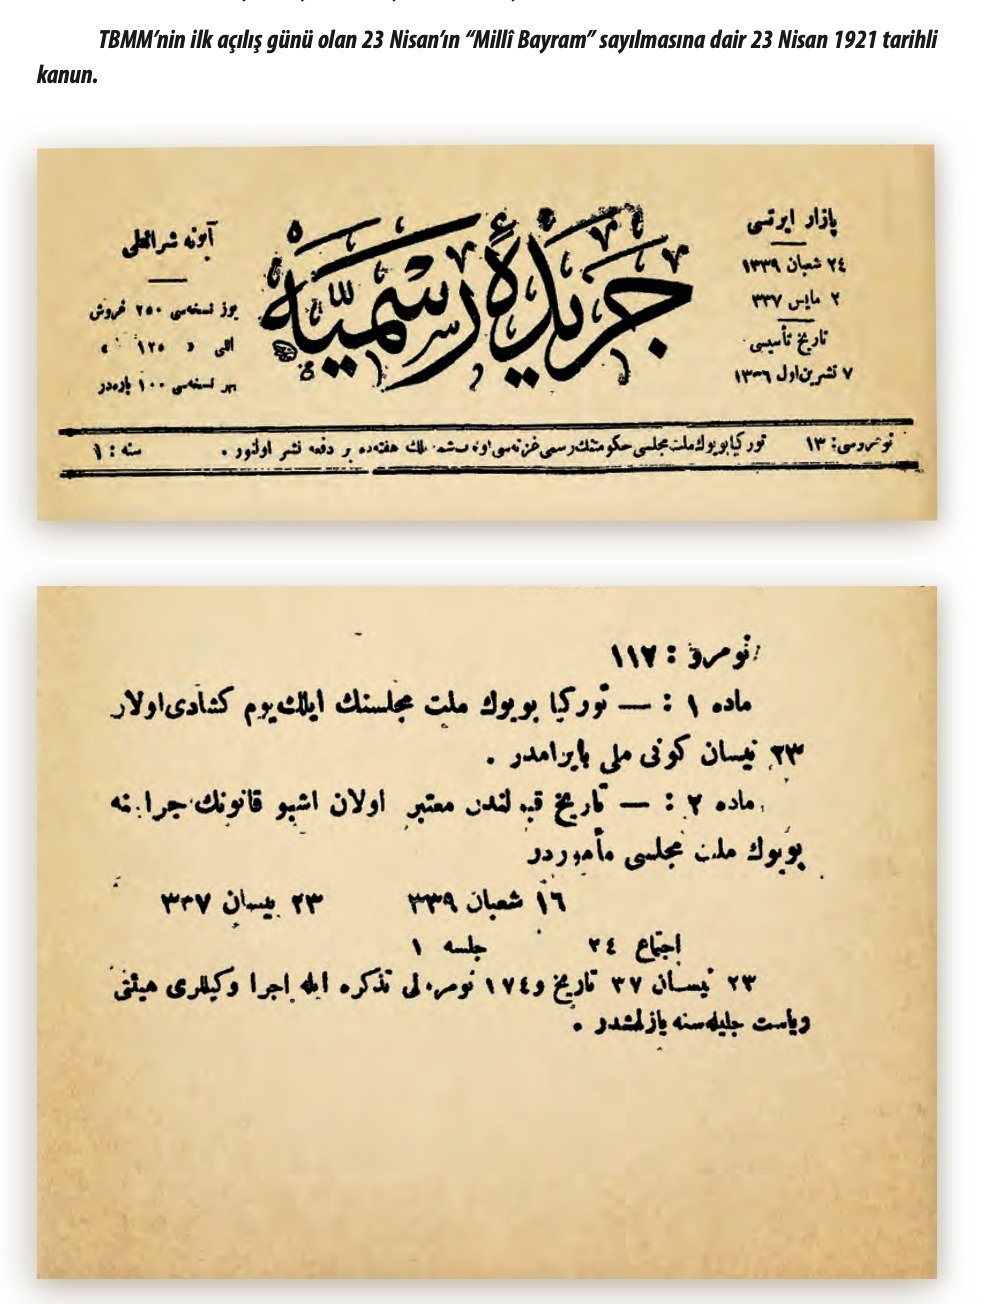 TBMM’nin ilk açılış günü olan 23 Nisan’ın “Millî Bayram” sayılmasına dair 23 Nisan 1921 tarihli
kanun.
پازار ايرتسی
٢٤ شعبان ١٣٣٩
٢ مايس ٣٣٧
تاريخ تأسيسی
٧ تشرين اول ١٣٣٦
جريدۀ رسميه
آبونه شرائطی
يوز نسخه‌سی ٢٥٠ غروش
اللی » ١٢٥ »
بهر نسخه‌سی ١٠٠ پاره‌در
نومروسی: ١٣
توركيا بويوك ملت مجلسی حكومتنك رسمی غزته‌سی هفته‌ده بر دفعه نشر اولنور .
سنه : ١
نومرو : ١١٧
ماده ١ : — توركيا بويوك ملت مجلسنك ايلك يوم كشادی اولان
٢٣ نيسان كونی ملی بايرامدر .
ماده ٢ : — تاريخ قبولندن معتبر اولان اشبو قانونك اجراسنه
بويوك ملت مجلسی مأموردر
١٦ شعبان ٣٣٩ ٢٣ نيسان ٣٣٧
اجتماع ٢٤ جلسه ١
٢٣ نيسان ٣٧ تاريخ و ١٧٤ نومرولی تذكره ايله اجرا وكيللری هيئتی
رياست جليله‌سنه يازلمشدر .